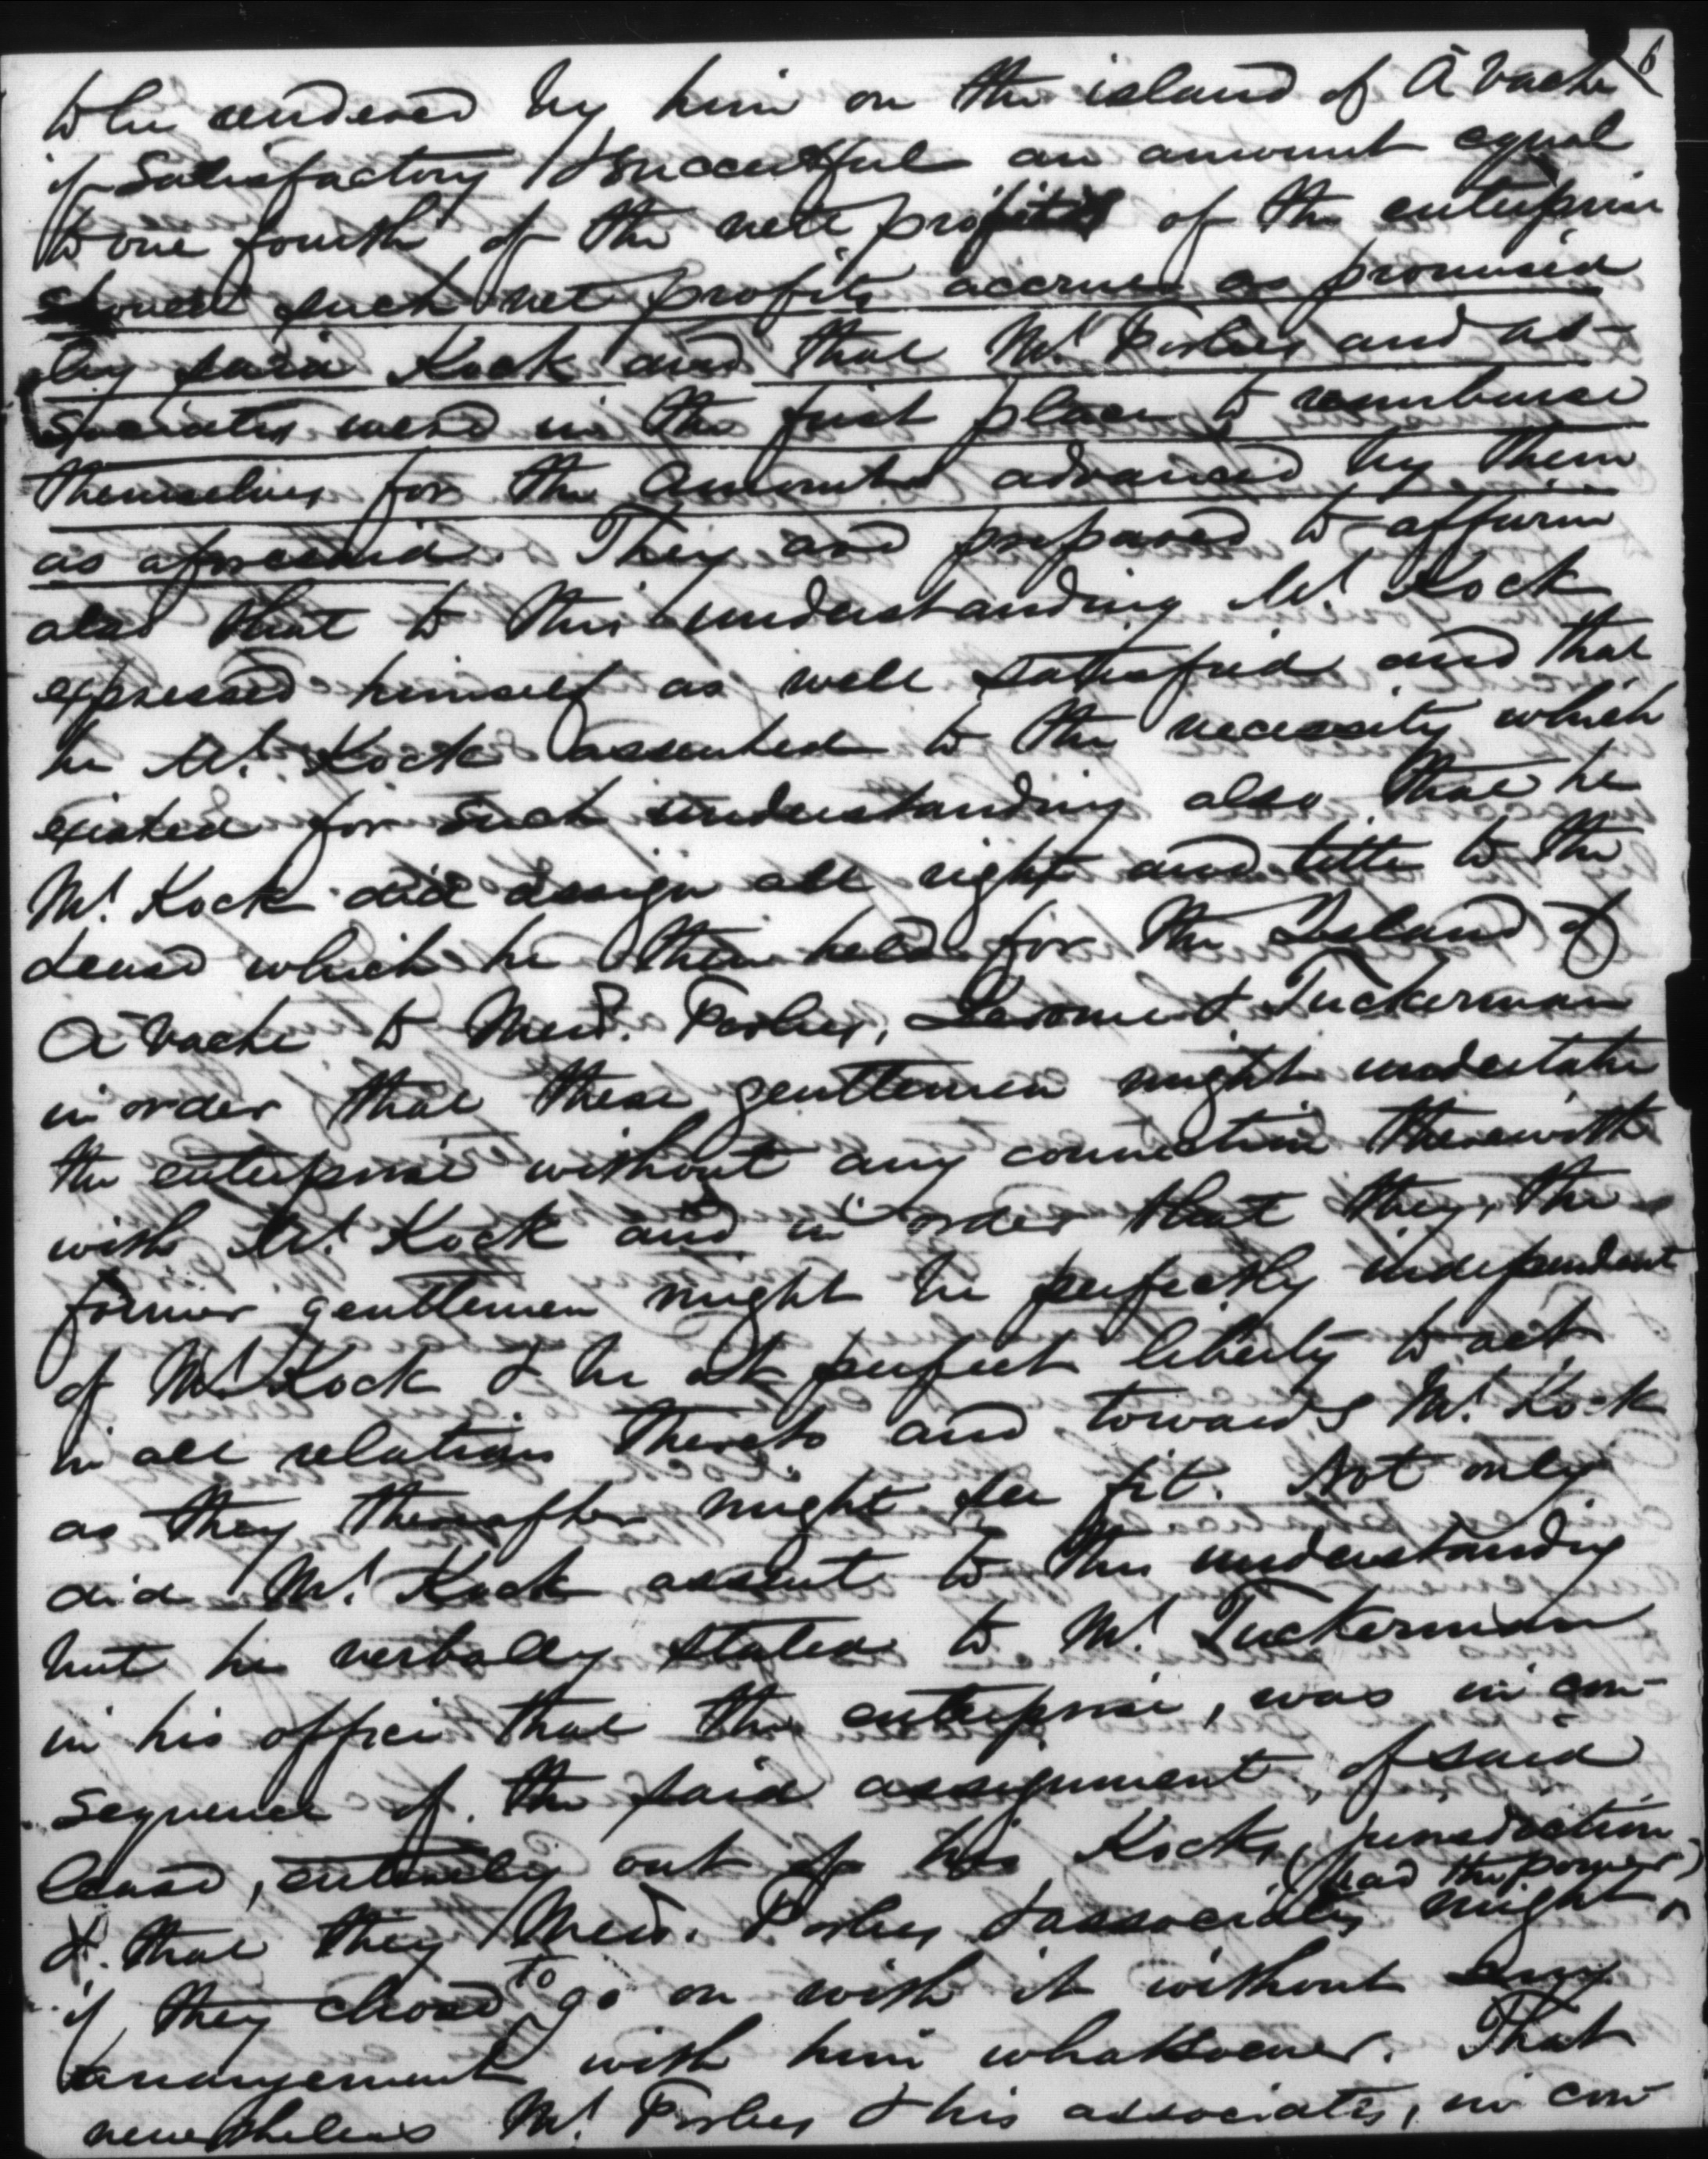 6
to be rendered by him on the island of A'Vache
if Satisfactory & Successful an amount equal
to one fourth of the nett profits of the enterprise
should such net profits accrue as promised
by said Kock and that Mr. Forbes and as-
sociates were in the first place to reimburse
themselves for the amounts advanced by them
as aforesaid. They are prepared to affirm
also that to this understanding Mr. Kock
expressed himself as well satisfied and that
he Mr. Kock assented to the necessity which
existed for such understanding also that he
Mr. Kock did assign all right and title to the
Lease which he then held for the Island of
A'Vache to Messrs. Forbes, Jerome & Tuckerman
in order that these gentlemen might undertake
the enterprise without any connection therewith
with Mr. Kock and in order that they, the
former gentlemen might be perfectly independent
of Mr. Kock & be at perfect liberty to act
in all relations thereto and towards Mr. Kock
as they thereafter might see fit. Not only
did Mr. Kock assent to this understanding
but he verbally stated to Mr. Tuckerman
in his office that the enterprise, was in con-
sequence of the said assignment, of said
lease, entirely out of his Kocks, jurisdiction
(had the power)
& that they Messrs. Forbes & associates might
if they chose to go on with it without any
arrangement with him whatsoever. That
nevertheless Mr. Forbes & his associates, in con-